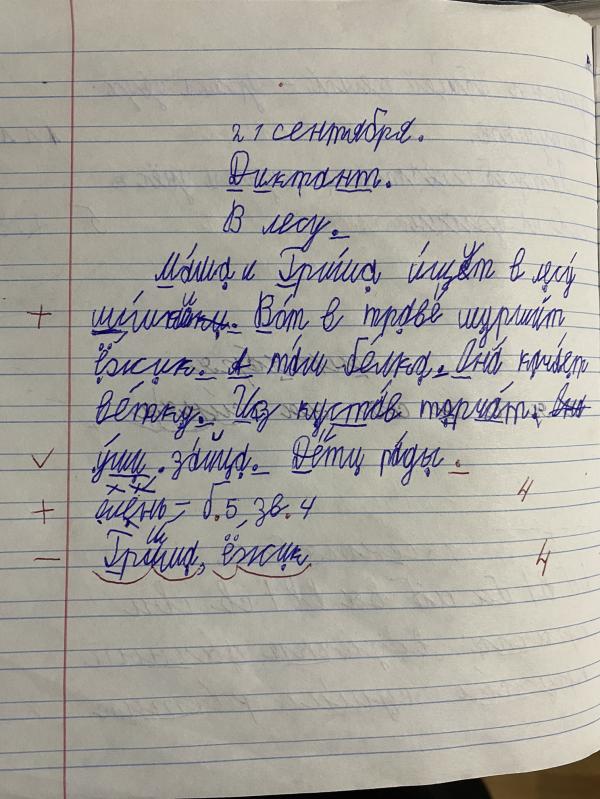 21 сентября.
Диктант.
В лесу.
Маша и Гриша ищут в лесу
+ шишки. Вот в траве шуршит
ёжик. А там белка. Она качает
ветку. Из кустов торчат.
√ уши. зайца. Дети рады.
+ олень - б.5, зв.4 4
- Гриша, ёжик 4